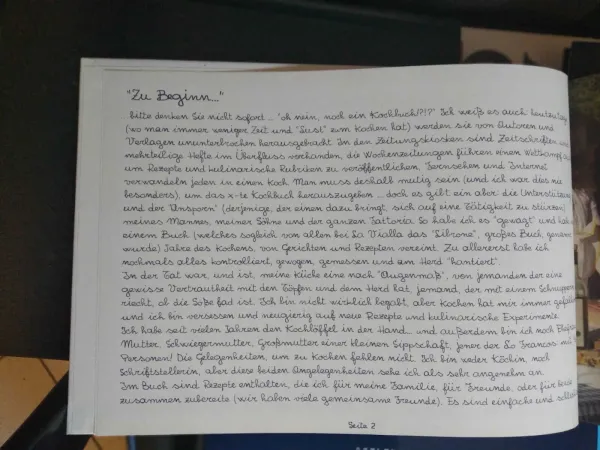 "Zu Beginn..."
bitte denken Sie nicht sofort ... "oh nein, noch ein Kochbuch!?!?" Ich weiß es auch heutzutag
(wo man immer weniger Zeit und "Lust" zum Kochen hat) werden sie von Autoren und
Verlagen ununterbrochen herausgebracht. In den Zeitungskiosken sind Zeitschriften und
mehrteilige Hefte im Überfluss vorhanden, die Wochenzeitungen führen einen Wettkampf
um Rezepte und kulinarische Rubriken zu veröffentlichen. Fernsehen und Internet
verwandeln jeden in einen Koch. Man muss deshalb mutig sein (und ich war dies nie
besonders), um das x-te Kochbuch herauszugeben ... doch es gibt ein aber: die Unterstützung
und der "Ansporn" (derjenige, der einen dazu bringt, sich auf eine Tätigkeit zu stürzen)
meines Mannes, meiner Söhne und der ganzen Fattoria. So habe ich es "gewagt" und hab
einem Buch (welches sogleich von allen bei La Vialla das "Librone", großes Buch, genannt
wurde) Jahre des Kochens, von Gerichten und Rezepten vereint. Zu allererst habe ich
nochmals alles kontrolliert, gewogen, gemessen und am Herd "hantiert".
In der Tat war, und ist, meine Küche eine nach "Augenmaß", von jemanden der eine
gewisse Vertrautheit mit den Töpfen und dem Herd hat, jemand, der mit einem Schnuppern
riecht, ob die Soße fad ist. Ich bin nicht wirklich begabt, aber Kochen hat mir immer gefallen
und ich bin versessen und neugierig auf neue Rezepte und kulinarische Experimente.
Ich habe seit vielen Jahren den Kochlöffel in der Hand... und außerdem bin ich noch
Mutter, Schwiegermutter, Großmutter einer kleinen Sippschaft, jener der Lo Franco mit
Personen! Die Gelegenheiten, um zu Kochen fehlen nicht. Ich bin weder Köchin, noch
Schriftstellerin, aber diese beiden Angelegenheiten sehe ich als sehr angenehm an.
Im Buch sind Rezepte enthalten, die ich für meine Familie, für Freunde, oder für beide
zusammen zubereite (wir haben viele gemeinsame Freunde). Es sind einfache und
Seite 2